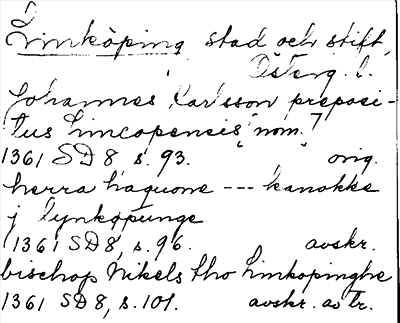 L
Linköping stad och stift,
Österg. l.
Johannes Karlsson preposi-
tus Lincopensis "nom."
1361 SD 8, s. 93. orig.
herra haquone --- kanokke
j lynkøpunge
1361 SD 8, s. 96. avskr.
bischop Nikels tho Linkopinghe
1361 SD 8, s. 101. avskr. av tr.